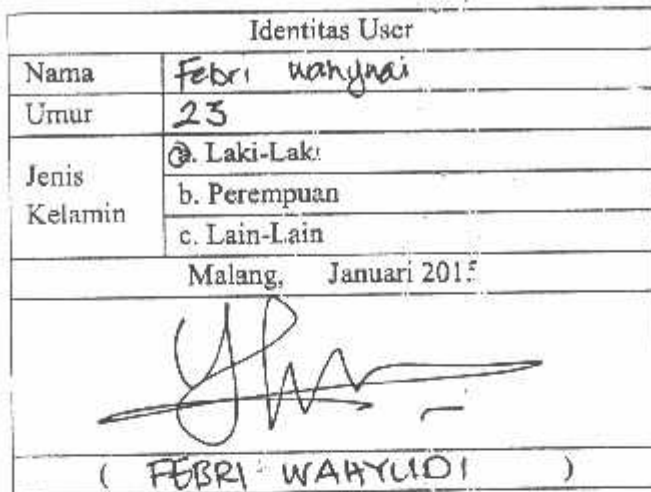 Identitas User
Nama Febri Wahyudi
Umur 23
Jenis Kelamin
a. Laki-Laki
b. Perempuan
c. Lain-Lain
Malang, Januari 2015
( FEBRI WAHYUDI )